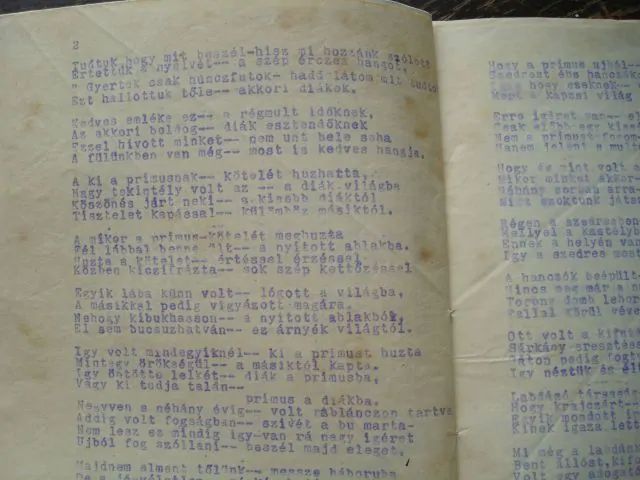 2
Tudtuk hogy mit beszél-hisz mi hozzánk szólott
Értettük a nyelvét-- a szép érczes hangot,
" Gyertek csak hunczfutok- hadd látom mit tudtok
Ezt hallottuk tőle-- akkori diákok.
Kedves emléke ez-- a régmult időknek,
Az akkori boldog-- diák esztendőknek
Ezzel hivott minket-- nem unt bele soha
A fülünkben van még-- most is kedves hangja.
A ki a primusnak-- kötelét huzhatta,
Nagy tekintély volt az -- a diák világba
Köszönés járt neki-- a kisebb diáktól
Tisztelet kapással-- külömböz másiktól.
A mikor a primus-kötelét meghuzta
Fél lábbal benne ült-- a nyitott ablakba.
Huzta a kötelet-- értéssel érzéssel,
Közben kiczifrázta-- sok szép kettőzéssel
Egyik lába künn volt-- lógott a világba,
A másikkal pedig vigyázott magára.
Nehogy kibukhasson-- a nyitott ablakból,
El sem bucsuzhatván-- ez árnyék világtól.
Igy volt mindegyiknél-- ki a primust huzta
Mintegy örökségül-- a másiktól kapta.
Igy öntötte lelkét-- diák a primusba,
Vagy ki tudja talán--
primus a diákba.
Negyven s néhány évig-- volt rábláncon tartva
Addig volt fogságban-- szivét a bu marta-
Nem lesz ez mindig igy-van rá nagy igéret
Ujból fog szóllani-- beszél majd eleget.
Majdnem elment tőlünk-- messze háboruba
Hogy a primus ujból--
hogy ezeknek--
Mert a kapzsi világ
Erre igéret van-- el
Nem a primust fogom
Hanem jelenti a mult
Hogy és mint volt a
Mikor minket akkor
Néhány sorban arra
Mint szoktunk játs
Régen a szedresben
Mellyel a kastélyb
Ennek a helyén van
Igy a szedres most
A hanczók beépült
Nincs meg már a
Torony domb lehor
Fallal körül véve
Ott volt a kifut
Sárkány eresztés
Játon pedig fogt
Igy néztük és él
Labdázó társaság
Hogy krajczért--
Egyik mondott i
Kinek igaza lett
Mi még a labdán
Bent állost, kifo
Volt egy adogató